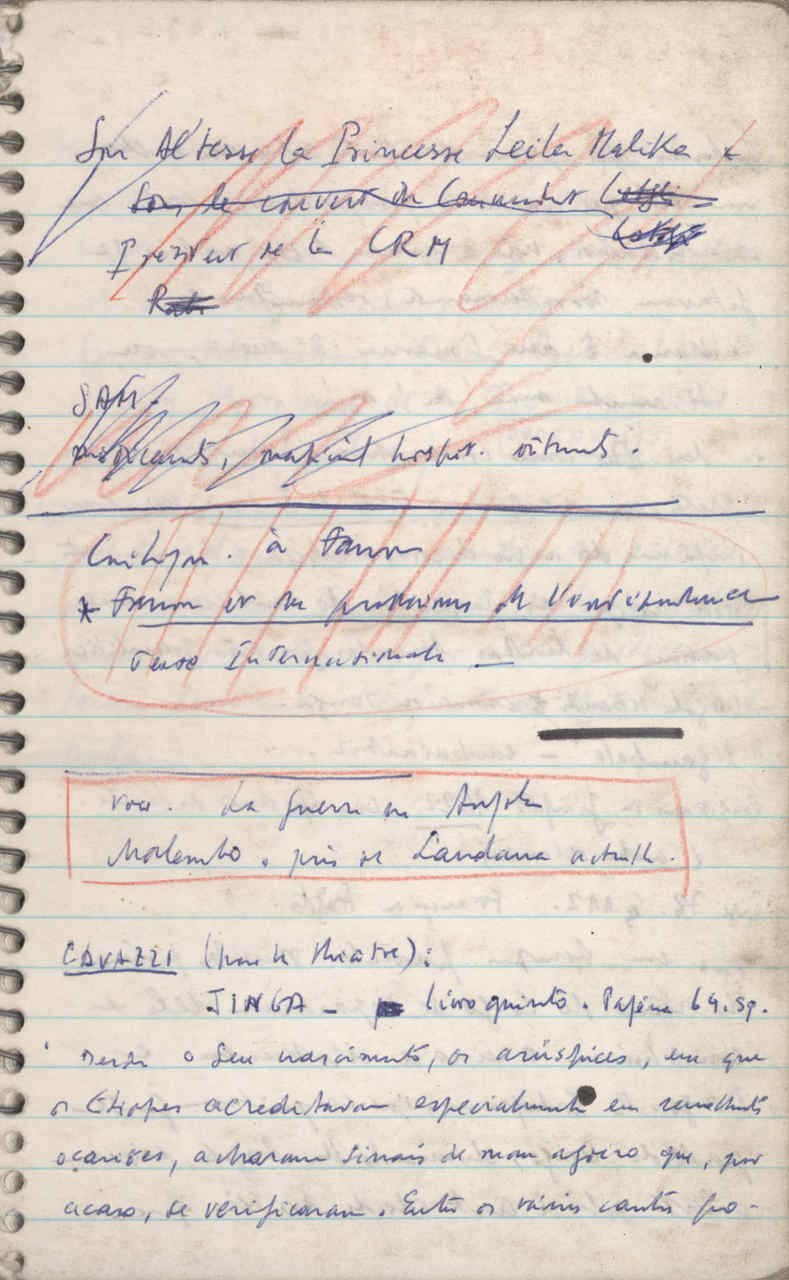 Son Altesse la Princesse Leila Malika
Sous le couvert du Commandant
Président de la CRM
SAM.
médicaments, matériel hospit. vêtements.
à Fanon
* Fanon et les problèmes de l'indépendance
Texto Internationale —
La guerre en Angola
Malembo, près de Landana actuelle.
CAVAZZI (pour le théâtre):
JINGA — livro quinto. Página 64.sg.
Desde o seu nascimento, os arúspices, em que
os Etíopes acreditavam especialmente em semelhantes
ocasiões, acharam sinais de mau agoiro que, por
acaso, se verificaram. Entre os vários cantos fo-